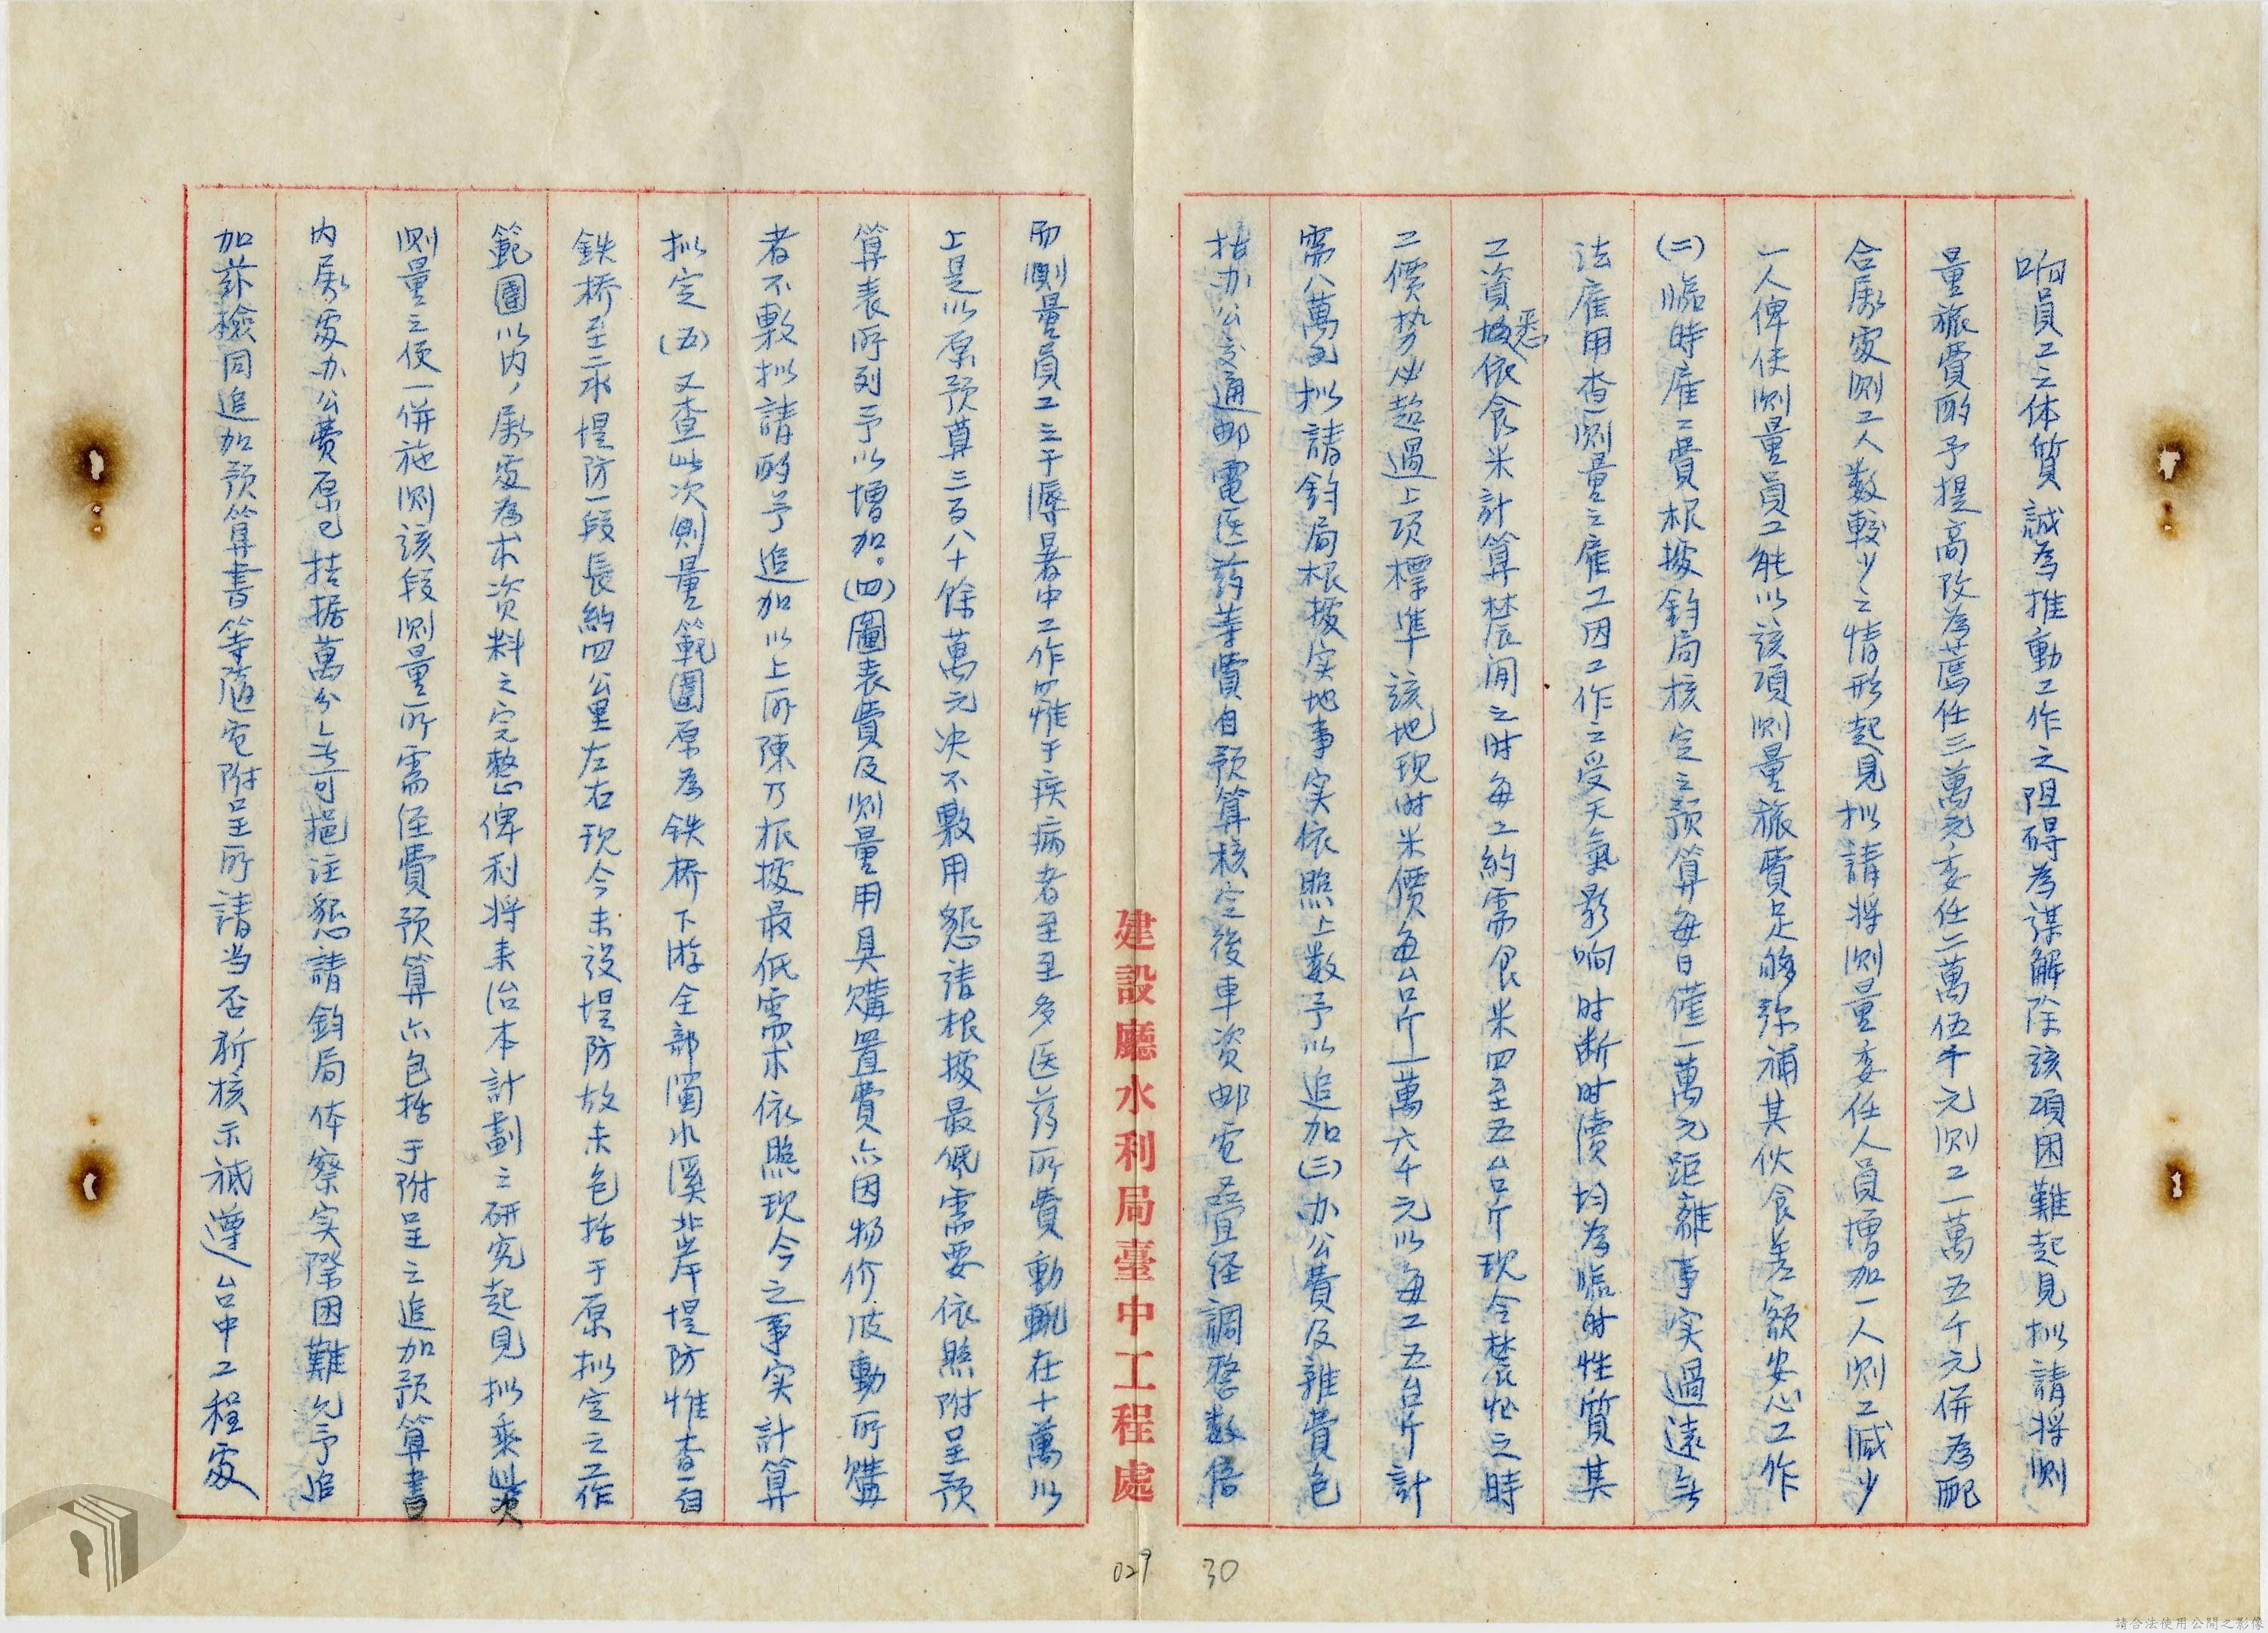 响員工之体質誠為推動工作之阻碍為謀解除該項困難起見拟請將測
量旅費酌予提高改為荐任三萬元委任二萬伍千元測工一萬五千元併為配
合属处測工人数較少之情形起見拟請将測量委任人員增加一人測工減少
一人俾使測量員工能以該項測量旅費足够弥補其伙食差額安心工作
(二)臨時雇工費根據鈞局核定之预算每日僅一萬元距離事实過遠無
法雇用查測量之雇工因工作之受天氣影响时断时續均為臨时性質其
工資悉依食米計算農閒之时每工約需食米四至五台斤現今農忙之時
工價势必超過上項標準該地现时米價每台斤一萬六千元以每工五台斤計
需八萬元拟請鈞局根據实地事实依照上数予以追加(三)办公費及雜費包
括办公交通邮電医药等費自预算核定後車资邮电叠经調整数倍
而測量員工三千 暑中工作罹于疾病者至多医药所費動輒在十萬以
上是以原预算三百八十餘萬元决不敷用懇請根據最低需要依照附呈预
算表所列予以增加。(四)圖表費及測量用具購置費亦因物价波動所購
者不敷拟請酌予追加以上所陳乃根據最低需求依照现今之事实計算
拟定(五)又查此次測量範圍原為铁桥下游全部濁水溪北岸堤防惟查自
鉄桥至二水堤防一段長約四公里左右现今未設堤防故未包括于原拟定之工作
範圍以内，属处為求资料之完整俾利将来治本計劃之研究起見拟乘此次
測量之便一併施測該段測量所需经費预算亦包括于附呈之追加预算書
内属处办公費原已拮据萬分無可挹注懇請鈞局体察实際困難允予追
加茲檢同追加预算書等隨电附呈所請当否祈核示祇遵台中工程处
建設廳水利局臺中工程處
029
30
請合法使用公開之影像